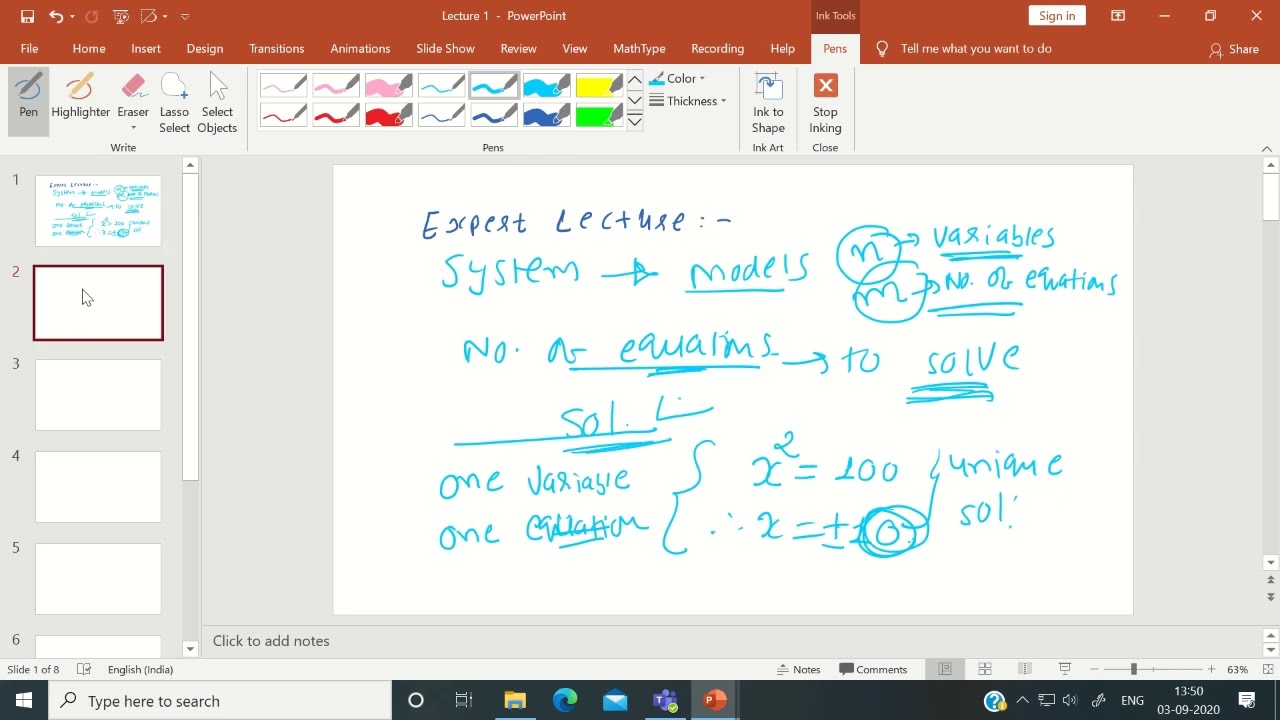 Lecture 1 - PowerPoint
Ink Tools
Sign in
File Home Insert Design Transitions Animations Slide Show Review View MathType Recording Help Pens Tell me what you want to do Share
Pen Highlighter Eraser Lasso Select Select Objects
Color
Thickness
Ink to Shape
Stop Inking
Write Pens Ink Art Close
1
2
3
4
5
6
Expert Lecture :-
System → models
n → variables
m → No. of equations
No. of equations → to solve
Sol.
one variable
one equation
x² = 100
∴ x = ±10
unique
sol.
Click to add notes
Slide 1 of 8 English (India) Notes Comments 63%
Type here to search
ENG
13:50
03-09-2020